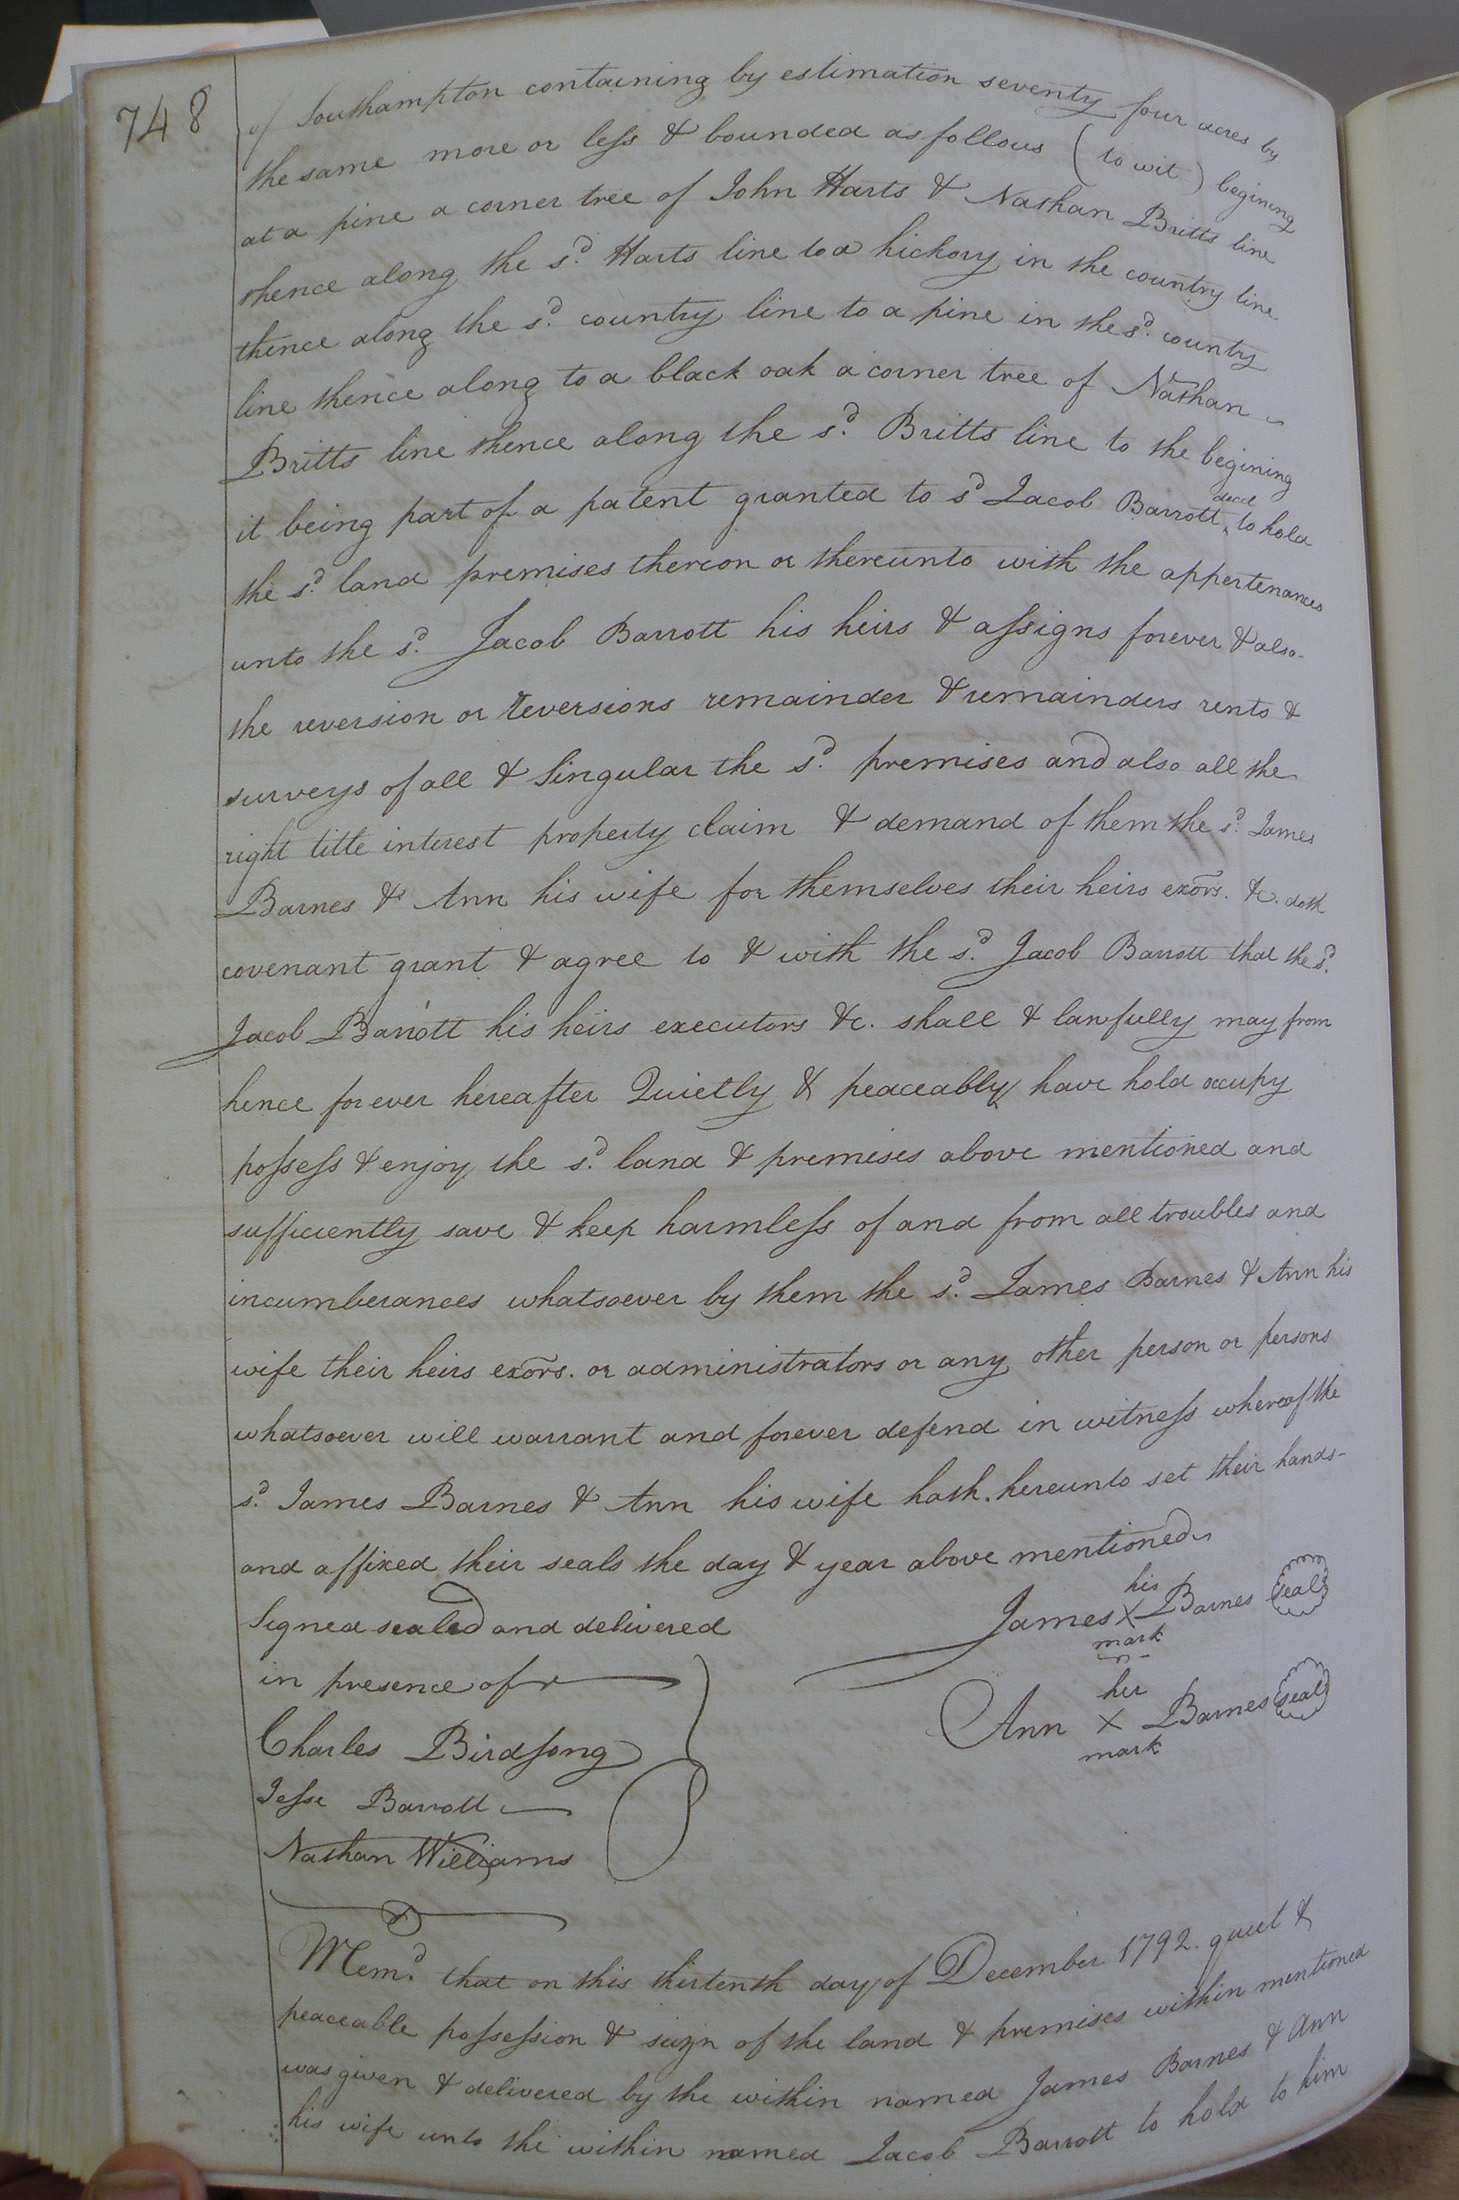 748
of Southampton containing by estimation seventy four acres by
the same more or less & bounded as follows (to wit) begining
at a pine a corner tree of John Harts & Nathan Britts line
thence along the sd. Harts line to a hickory in the country line
thence along the sd. country line to a pine in the sd. country
line thence along to a black oak a corner tree of Nathan
Britts line thence along the sd. Britts line to the begining
it being part of a patent granted to sd Jacob Barrott decd to hold
the sd. land premises thereon or thereunto with the appertenances
unto the sd. Jacob Barrott his heirs & assigns forever & also
the reversion or reversions remainder & remainders rents &
surveys of all & Singular the sd. premises and also all the
right title interest property claim & demand of them the sd. James
Barnes & Ann his wife for themselves their heirs exors. &c. doth
covenant grant & agree to & with the sd. Jacob Barrott that the sd.
Jacob Barrott his heirs executors &c. shall & lawfully may from
hence forever hereafter Quietly & peaceably have hold occupy
possess & enjoy the sd. land & premises above mentioned and
sufficiently save & keep harmless of and from all troubles and
incumberances whatsoever by them the sd. James Barnes & Ann his
wife their heirs exors. or administrators or any other person or persons
whatsoever will warrant and forever defend in witness whereof the
sd. James Barnes & Ann his wife hath hereunto set their hands
and affixed their seals the day & year above mentioned
Signed sealed and delivered
in presence of
his
James X Barnes seal
mark
her
Ann X Barnes seal
mark
Charles Birdsong
Jesse Barrott
Nathan Williams
Memd. that on this thirtenth day of December 1792. quiet &
peaceable possession & seizn of the land & premises within mentioned
was given & delivered by the within named James Barnes & Ann
his wife unto the within named Jacob Barrott to hold to him